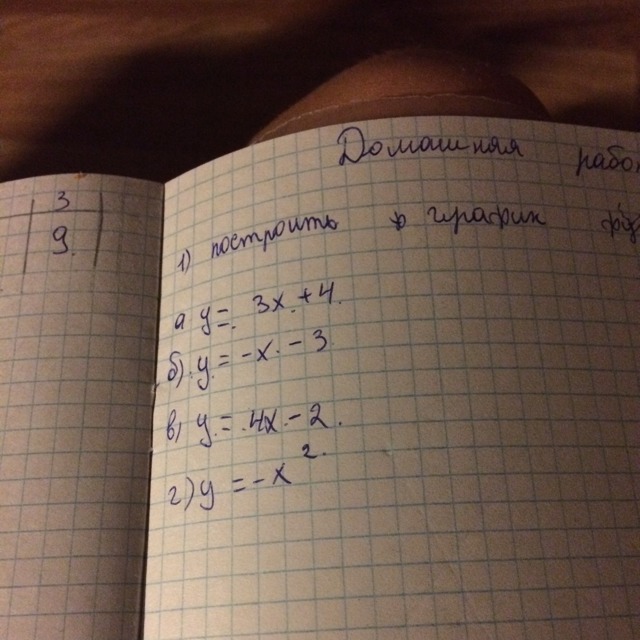 3
9
Домашняя
1) построить график
а y = 3x + 4.
б) y = -x - 3
в) y = 4x - 2.
г) y = -x²